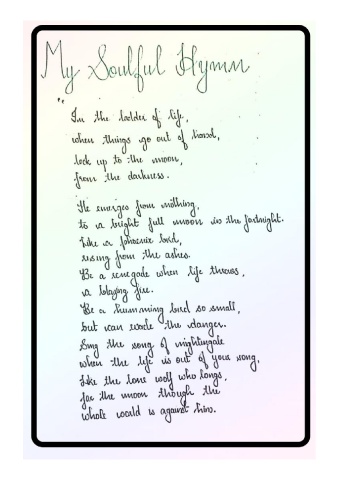 My Soulful Hymn
"
In the ladder of life,
when things go out of hand,
look up to the moon,
from the darkness.
He emerges from nothing,
to a bright full moon in the fortnight.
Like a phoenix bird,
rising from the ashes.
Be a renegade when life throws,
a blazing fire.
Be a humming bird so small,
but can evade the danger.
Sing the song of nightingale
when the life is out of your song,
Like the lone wolf who longs,
for the moon though the
whole world is against him.